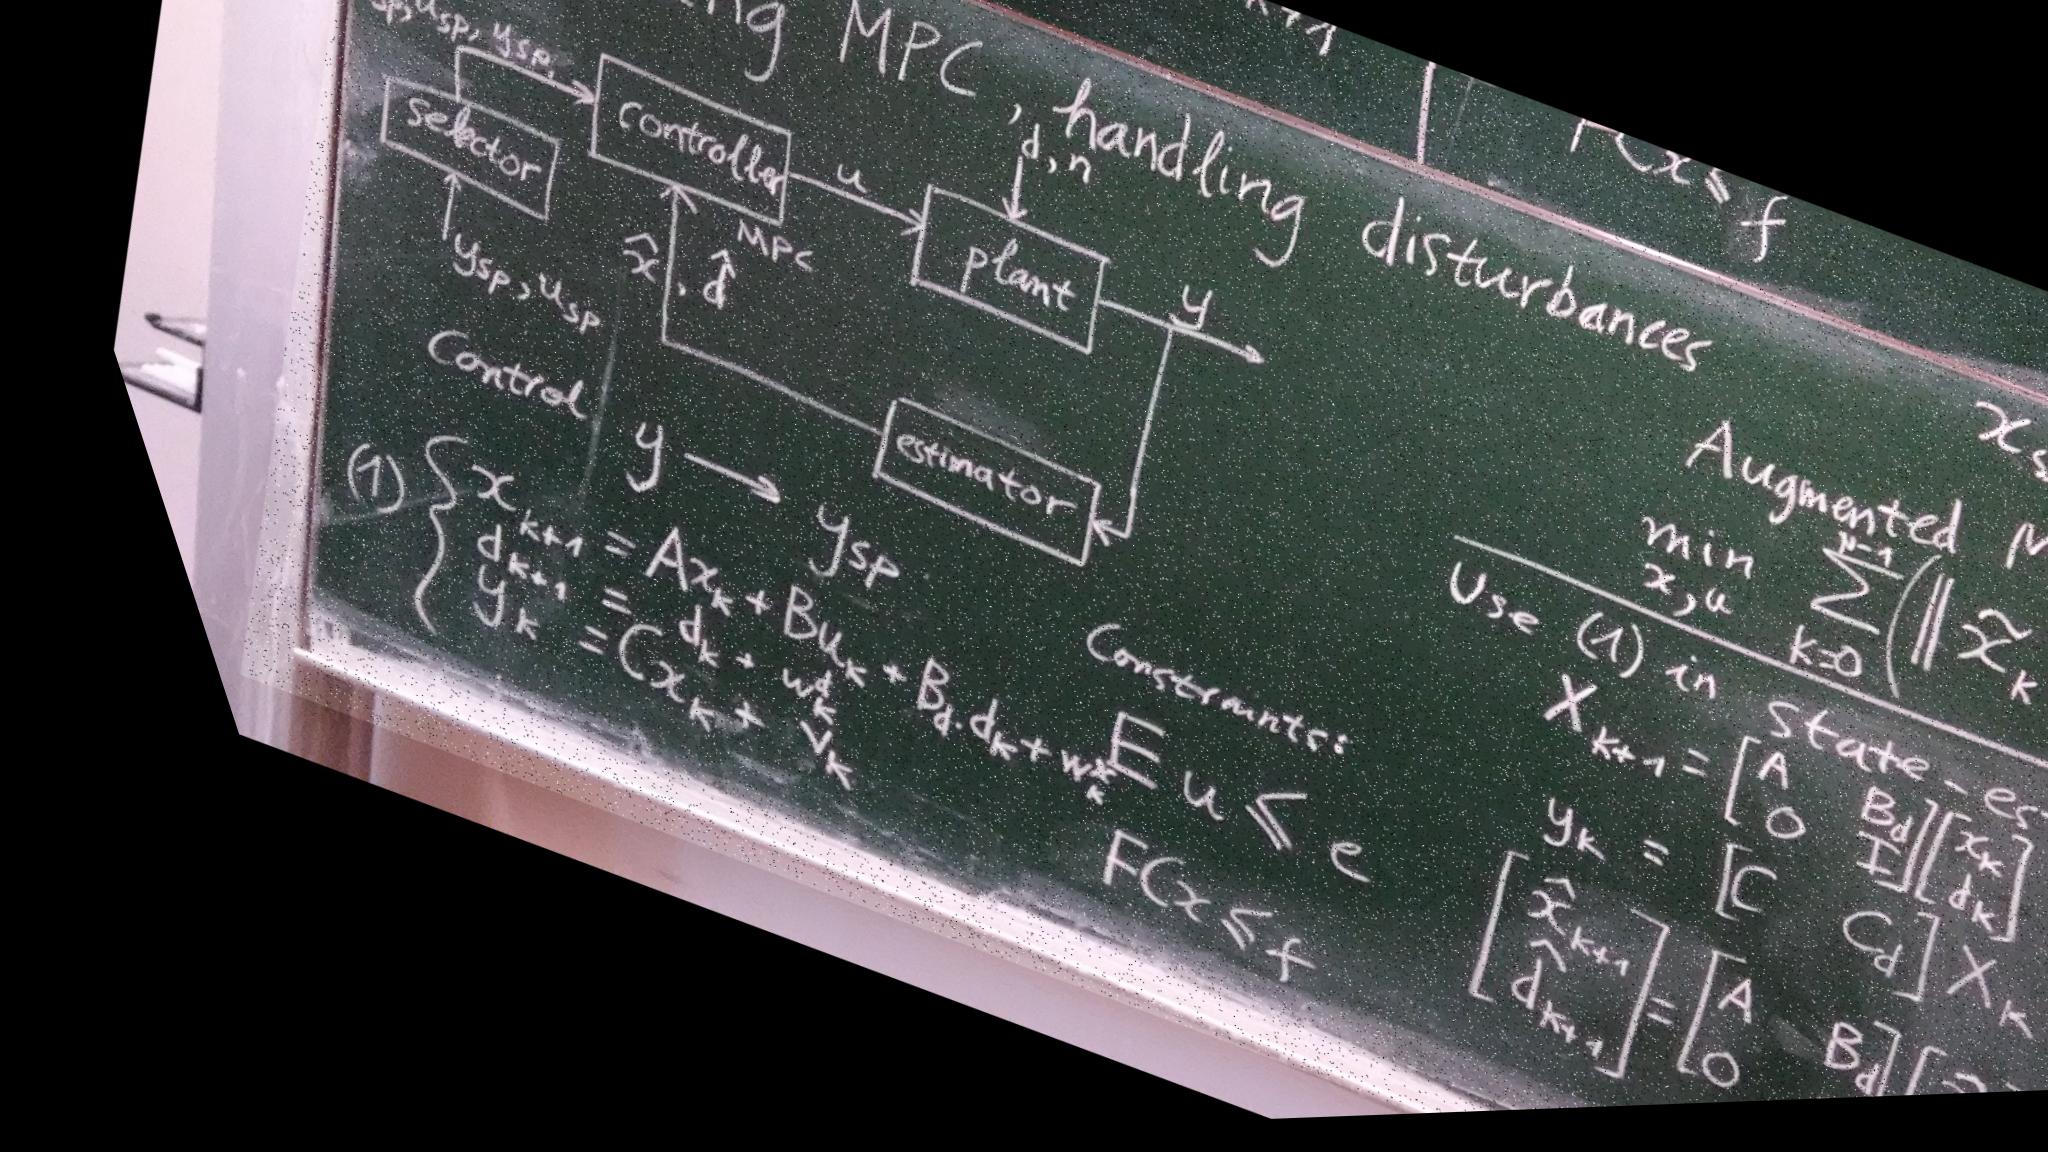 MPC, handling disturbances
u_sp, y_sp,
selector
controller
MPC
u
d, n
plant
y
y_sp, u_sp
x̂, d̂
estimator
Control y → y_sp
(1) { x_{k+1} = Ax_k + Bu_k + B_d·d_k + w_k^x
d_{k+1} = d_k + w_k^d
y_k = Cx_k + v_k
Constraints:
Eu ≤ e
FCx ≤ f
x ≤ f
Augmented
min x,u Σ_{k=0}^{N-1} (‖x̃_k
Use (1) in state-es
X_{k+1} = [A B_d; 0 I] [x_k; d_k]
y_k = [C C_d] X_k
[x̂_{k+1}; d̂_{k+1}] = [A B_d; 0